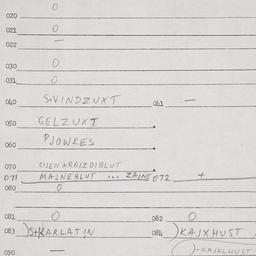 0
020
021 0
022 —
030 0
031 0
040 SVINDZUXT 041 —
050 GELZUXT
060 PJOWKES
070
071 MAJNEBLUT ... ZAJNE 072 +
080 0
081 0 082 0
083 084 )KAJXHUST
090 — )-KAJKLHUST